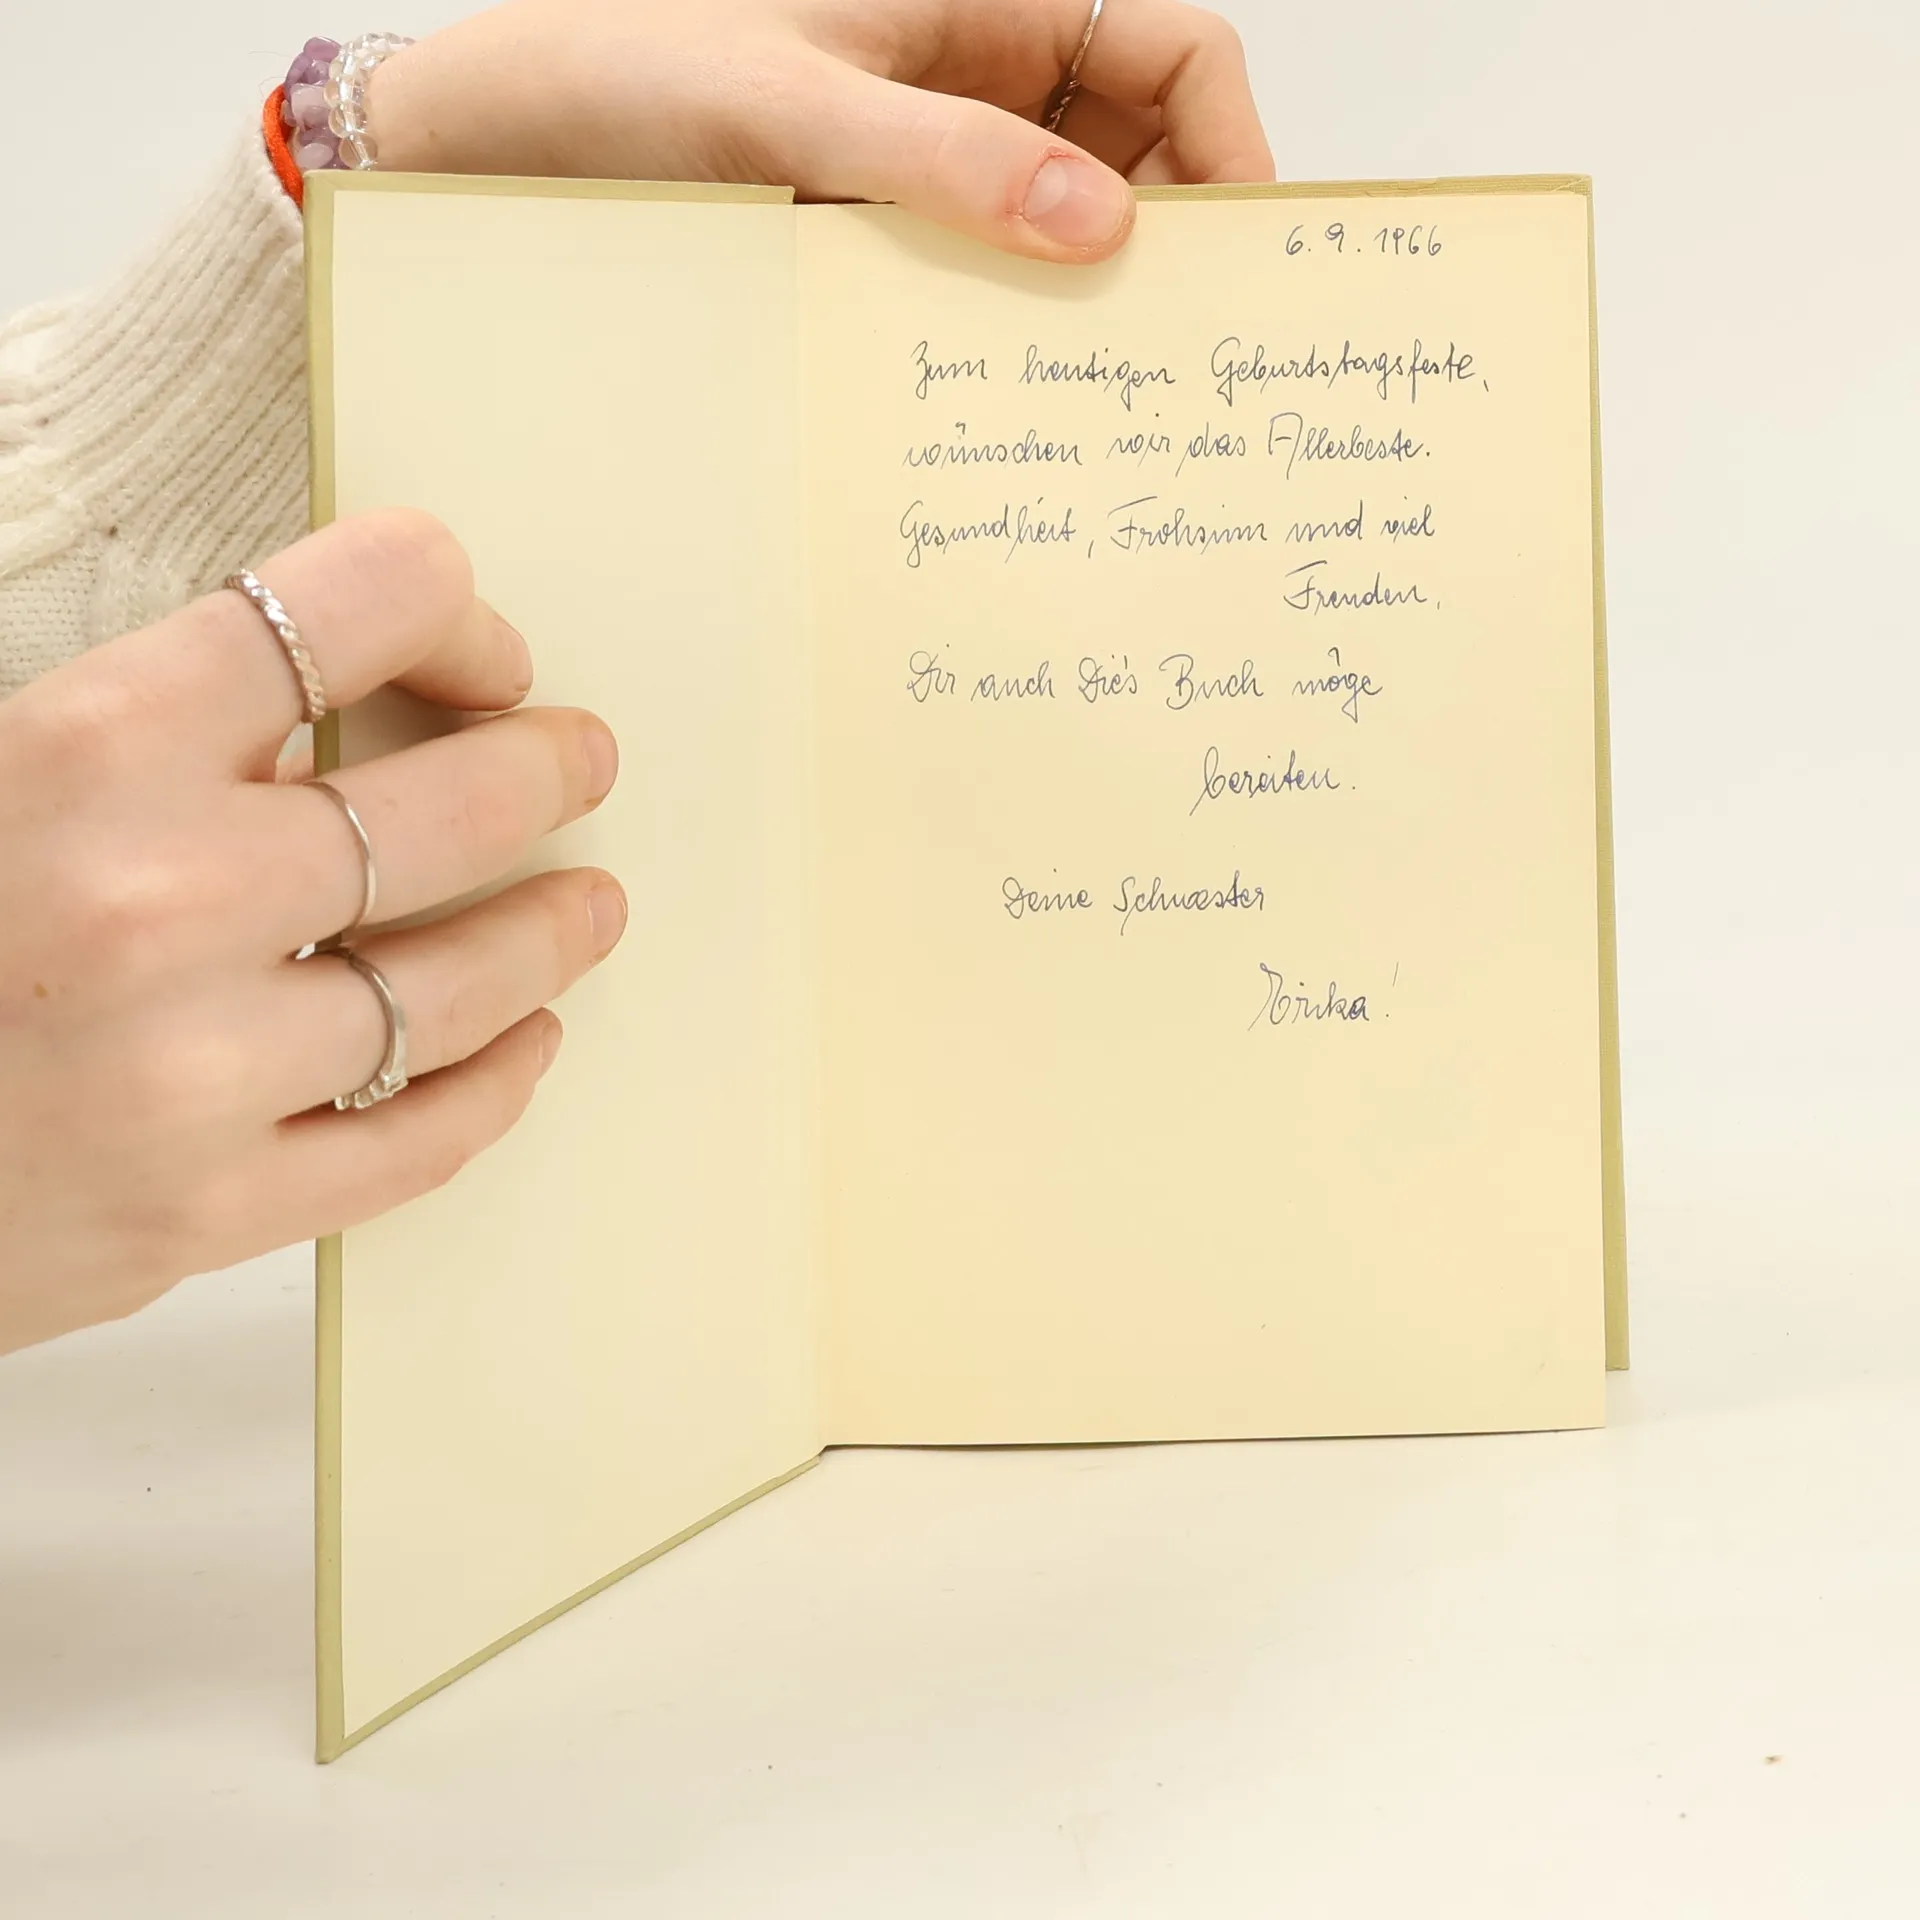 6. 9. 1966
Zum heutigen Geburtstagsfeste,
wünschen wir das Allerbeste.
Gesundheit, Frohsinn und viel
Freuden,
Dir auch Dies Buch möge
bereiten.
Deine Schwester
Erika!